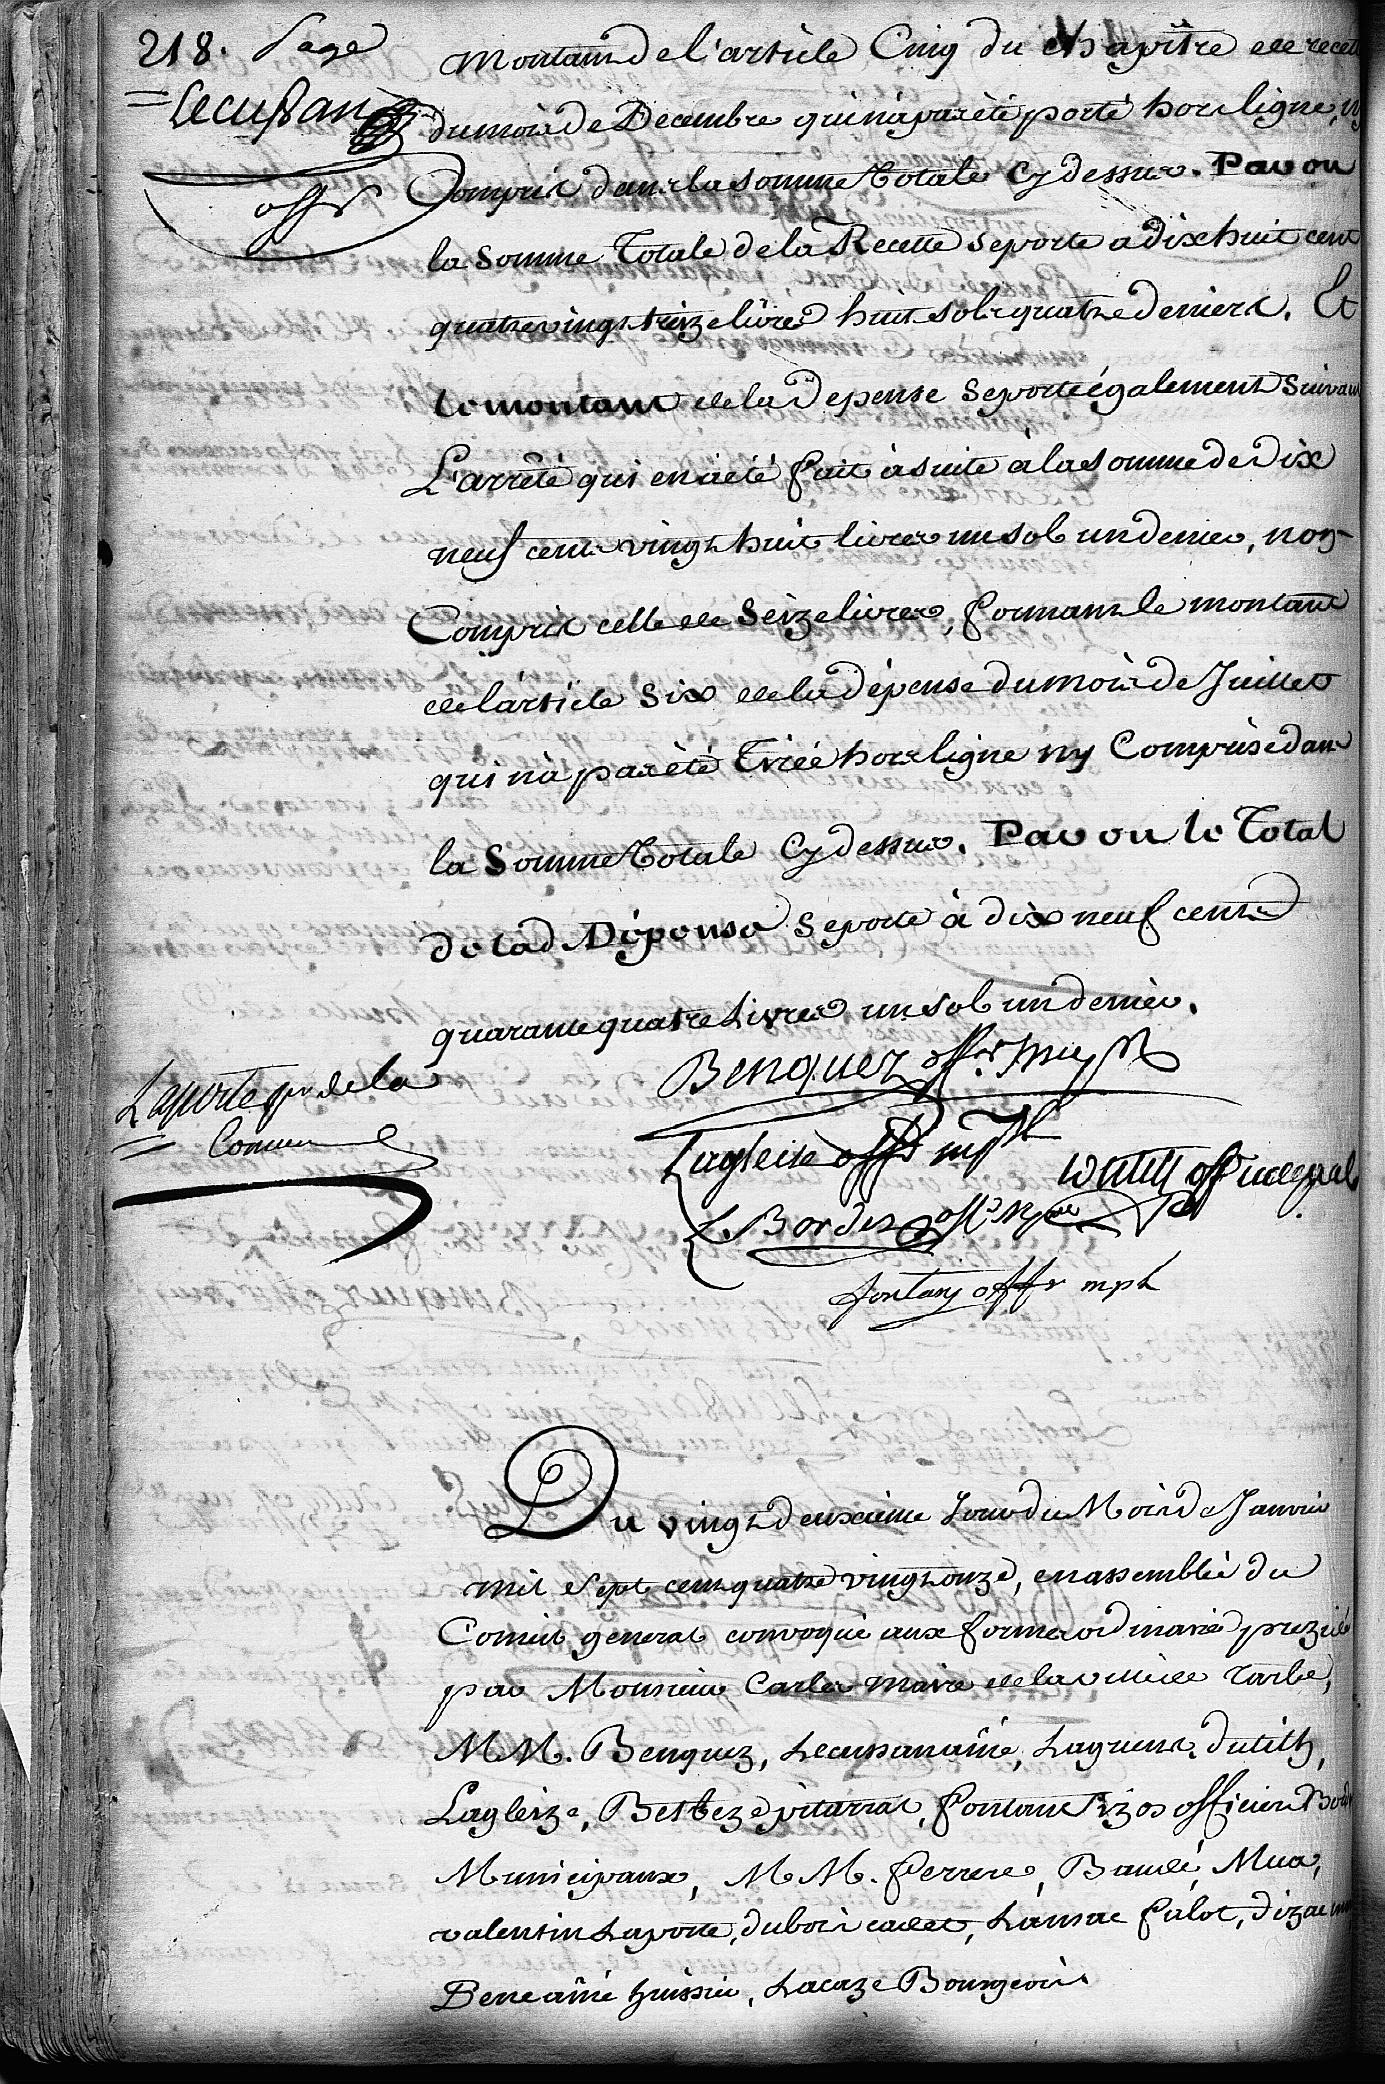 218. Page
Lecussan
offr
montant de l'article Cinq du chapitre de recett
du mois de Decembre qui n'a pas été porté hors ligne, ny
Compris dans la somme Totale Cy dessus. Par ou
la Somme Totale de la Recette se porte a dix huit cent
quatre vingt treize livres huit sols quatre deniers. Et
le montant de la Depense se porte également Suivant
L'arrêté qui en a été fait à suite à la somme de Dix
neuf cent vingt huit livres un sol un denier, non
Compris celle de Seize livres, formant le montant
de l'article Six de la dépense du mois de Juillet
qui n'a pas été Tirée hors ligne ny Comprise dans
la Somme Totale Cy dessus. Par ou le Total
de lad Dépense se porte à dix neuf cents
quarante quatre Livres un sol un denier.
Benquez offr mupl
Laporte pr de la
Comune
Lagleise offr mpl
Dutilh off municipal
L Bordes offr
fontan offr mpl
Du vingt deuxieme Jour du Mois de Janvier
mil Sept cent quatre vingt onze, en assemblée du
Conseil general convoqué aux formes ordinaires prezidé
par Monsieur Carles maire de la ville de Tarbe,
MM. Benquez, Lecussan aîné, Laguens, dutilh,
Lagleize, Bordes officiers
Municipaux, MM. ferrere, Baulé, Mua,
valentin Laporte, dubois cadet, Lansac falot, dizac
Bene aîné huissier, Lacaze Bourgeois